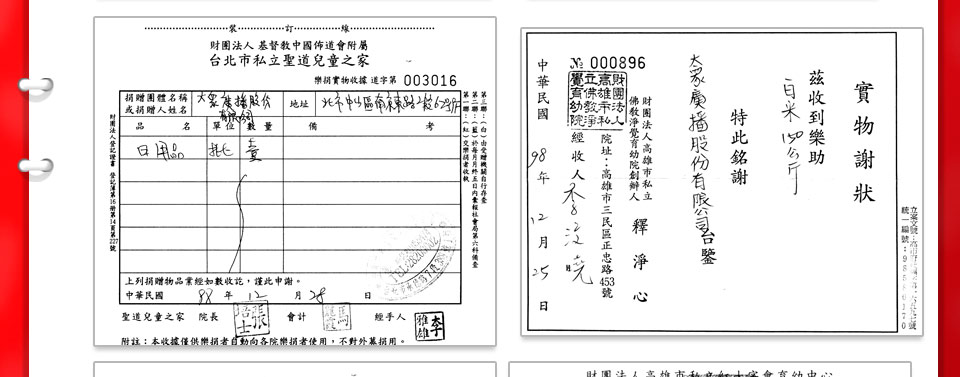 裝 訂 線
財團法人 基督教中國佈道會附屬
台北市私立聖道兒童之家
樂捐實物收據 道字第 003016
捐贈團體名稱
或捐贈人姓名
大眾廣播股份
有限公司
地址
品 名 單位 數量 備 考
日用品 批 壹
上列捐贈物品業經如數收訖，謹此申謝。
中華民國 98 年 12 月 28 日
聖道兒童之家 院長 張培士 會計 經手人 李雅雄
附註：本收據僅供樂捐者自動向各院樂捐者使用，不對外募捐用。
第三聯：（白）由受贈機關自行存查
第二聯：（藍）於每月月終五日內彙報社會局第六科備查
第一聯：（紅）交樂捐者收執
財團法人登記證書 登記簿第16冊第14頁第227號
實物謝狀
茲收到樂助
白米150公斤
特此銘謝
大眾廣播股份有限公司台鑒
財團法人高雄市私立
佛教淨覺育幼院創辦人 釋淨心
院址：高雄市三民區正忠路453號
經收人
財團法人
高雄市私
立佛教淨
覺育幼院
№ 000896
中華民國 98 年 12 月 25 日
統一編號：98586170